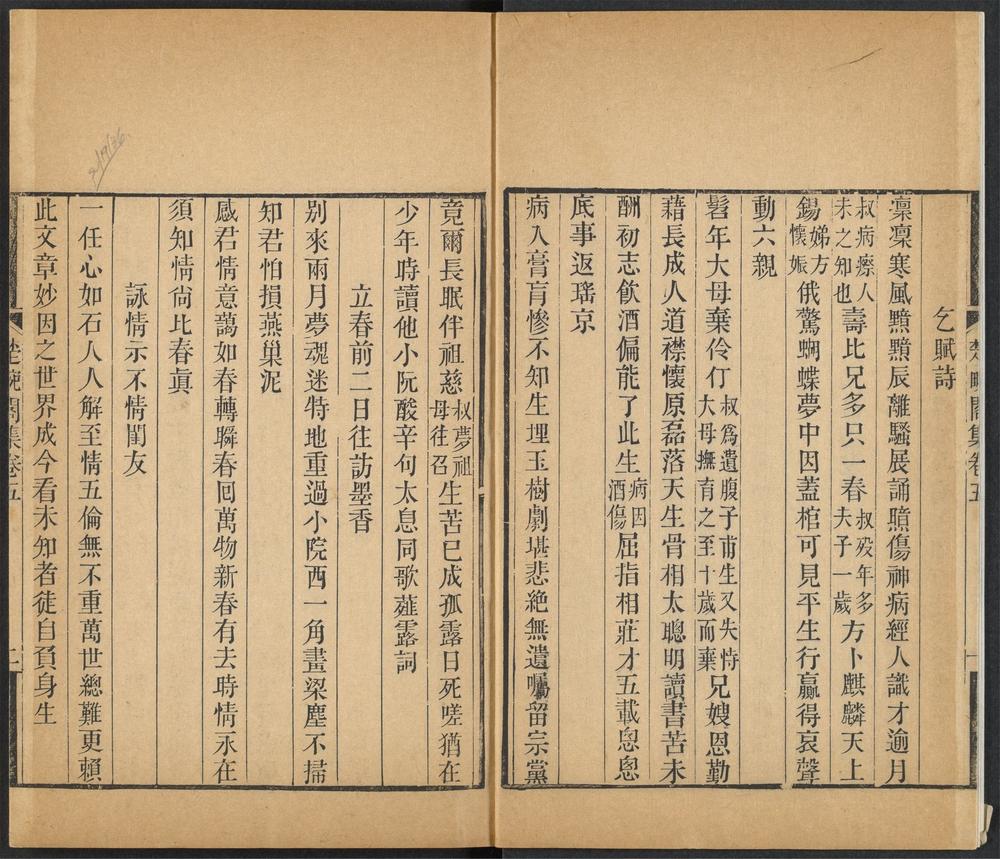 楚畹閣集卷五
一
乞賦詩
凛凛寒風黯黯辰離騷展誦黯傷神病經人識才逾月
叔病瘵人未之知也壽比兄多只一春叔歿年多夫子一歲方卜麒麟天上
錫娣方懷娠俄驚蝴蝶夢中因蓋棺可見平生行贏得哀聲
動六親
髫年大母棄伶仃叔爲遺腹子甫生又失恃大母撫育之至十歲而棄兄嫂恩勤
藉長成人道襟懷原磊落天生骨相太聰明讀書苦未
酬初志飲酒偏能了此生病因酒傷屈指相莊才五載悤悤
底事返瑤京
病入膏肓慘不知生埋玉樹劇堪悲絶無遺囑留宗黨
竟爾長眠伴祖慈叔夢祖母往召生苦已成孤露日死嗟猶在
少年時讀他小阮酸辛句太息同歌薤露詞
立春前二日往訪墨香
別來兩月夢魂迷特地重過小院西一角畫梁塵不掃
知君怕損燕巢泥
感君情意藹如春轉瞬春囘萬物新春有去時情永在
須知情尙比春眞
詠情示不情閨友
一任心如石人人解至情五倫無不重萬世總難更賴
此文章妙因之世界成今看未知者徒自負身生
楚畹閣集卷五
二